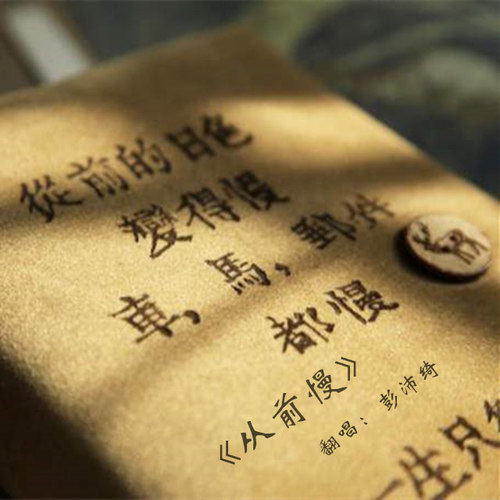 從前的日色
變得慢
車,馬,郵件
都慢
《从前慢》
翻唱:彭沛绮
一生只